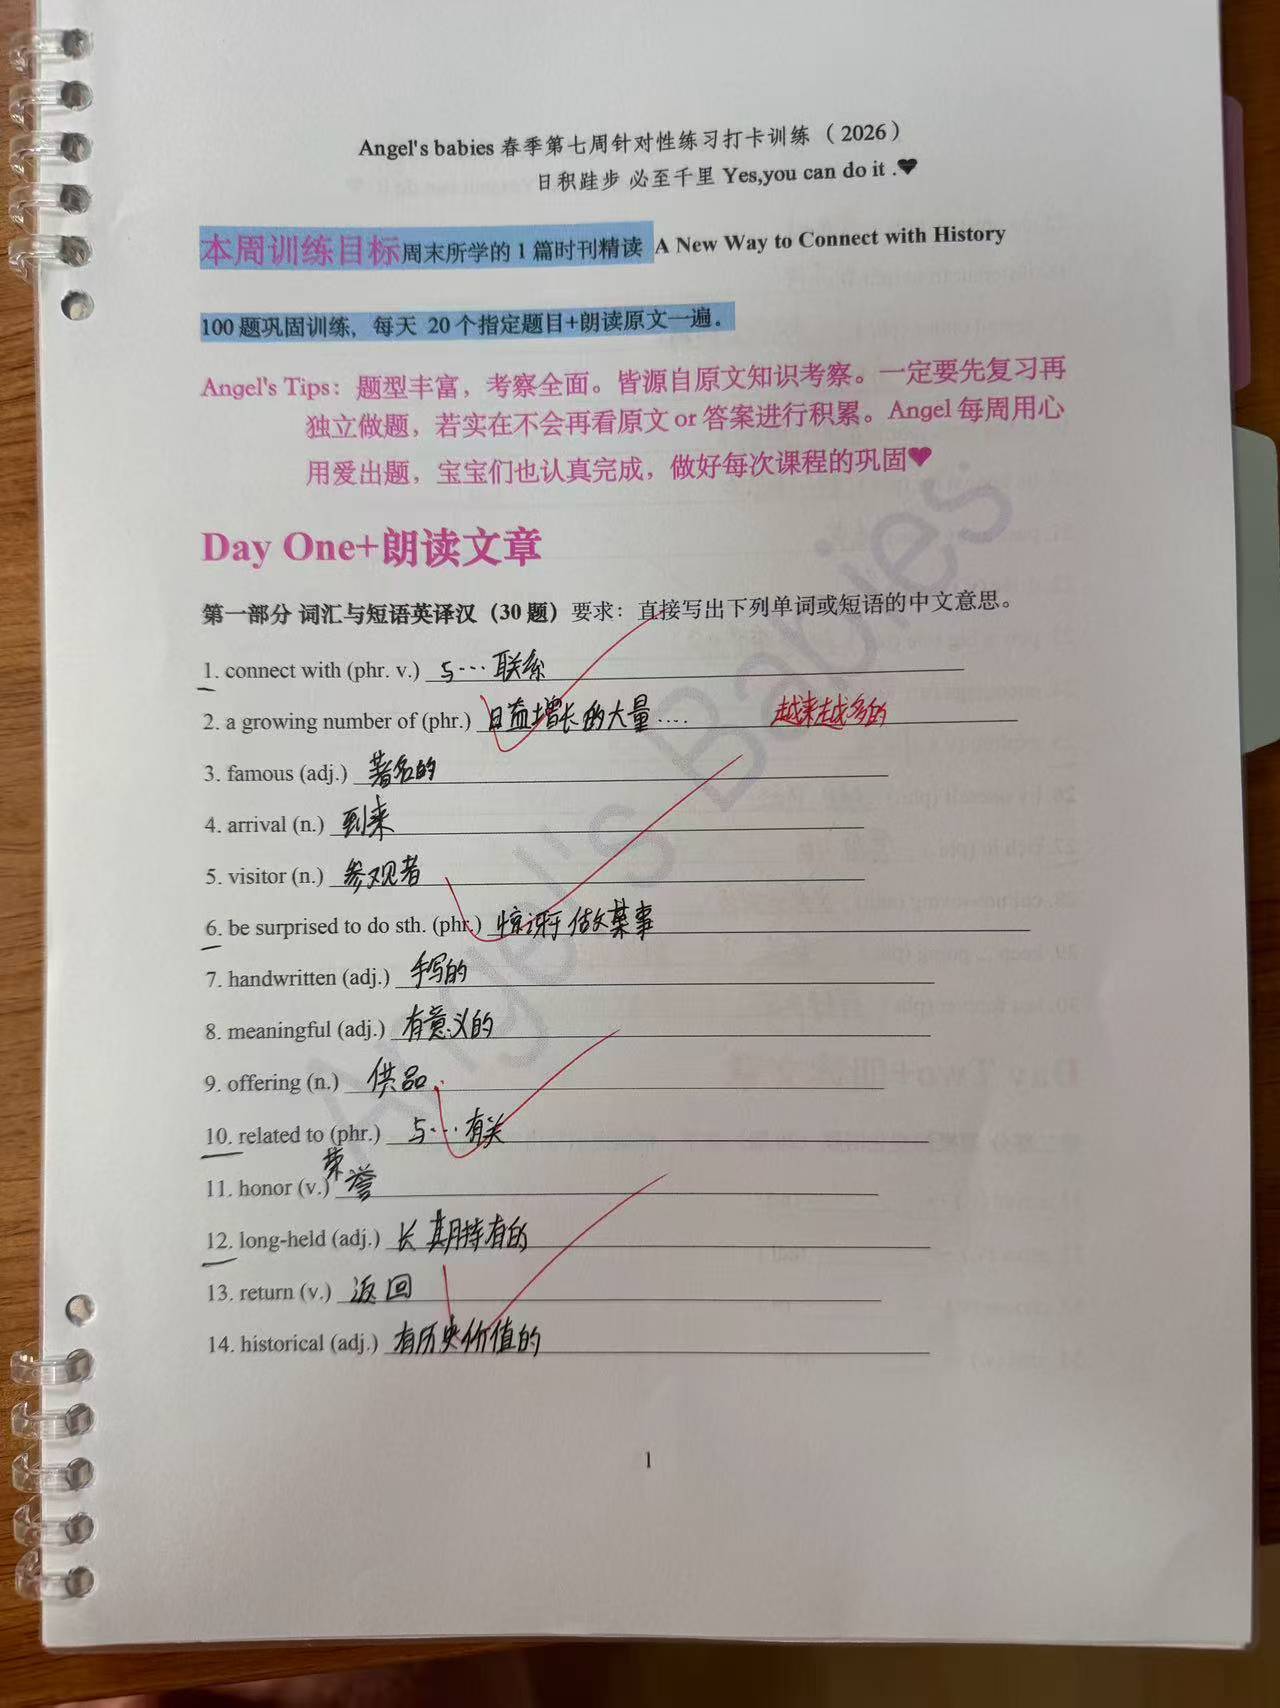 Angel's babies 春季第七周针对性练习打卡训练（2026）
日积跬步 必至千里 Yes,you can do it .❤
本周训练目标周末所学的1篇时刊精读 A New Way to Connect with History
100题巩固训练，每天 20个指定题目+朗读原文一遍。
Angel's Tips：题型丰富，考察全面。皆源自原文知识考察。一定要先复习再
独立做题，若实在不会再看原文 or 答案进行积累。Angel 每周用心
用爱出题，宝宝们也认真完成，做好每次课程的巩固❤
Day One+朗读文章
第一部分 词汇与短语英译汉（30题）要求：直接写出下列单词或短语的中文意思。
1. connect with (phr. v.) 与…联系
2. a growing number of (phr.) 日益增长的大量…. 越来越多的
3. famous (adj.) 著名的
4. arrival (n.) 到来
5. visitor (n.) 参观者
6. be surprised to do sth. (phr.) 惊讶于做某事
7. handwritten (adj.) 手写的
8. meaningful (adj.) 有意义的
9. offering (n.) 供品
10. related to (phr.) 与…有关
11. honor (v.) 荣誉
12. long-held (adj.) 长期持有的
13. return (v.) 返回
14. historical (adj.) 有历史价值的
1
Angel's Babies